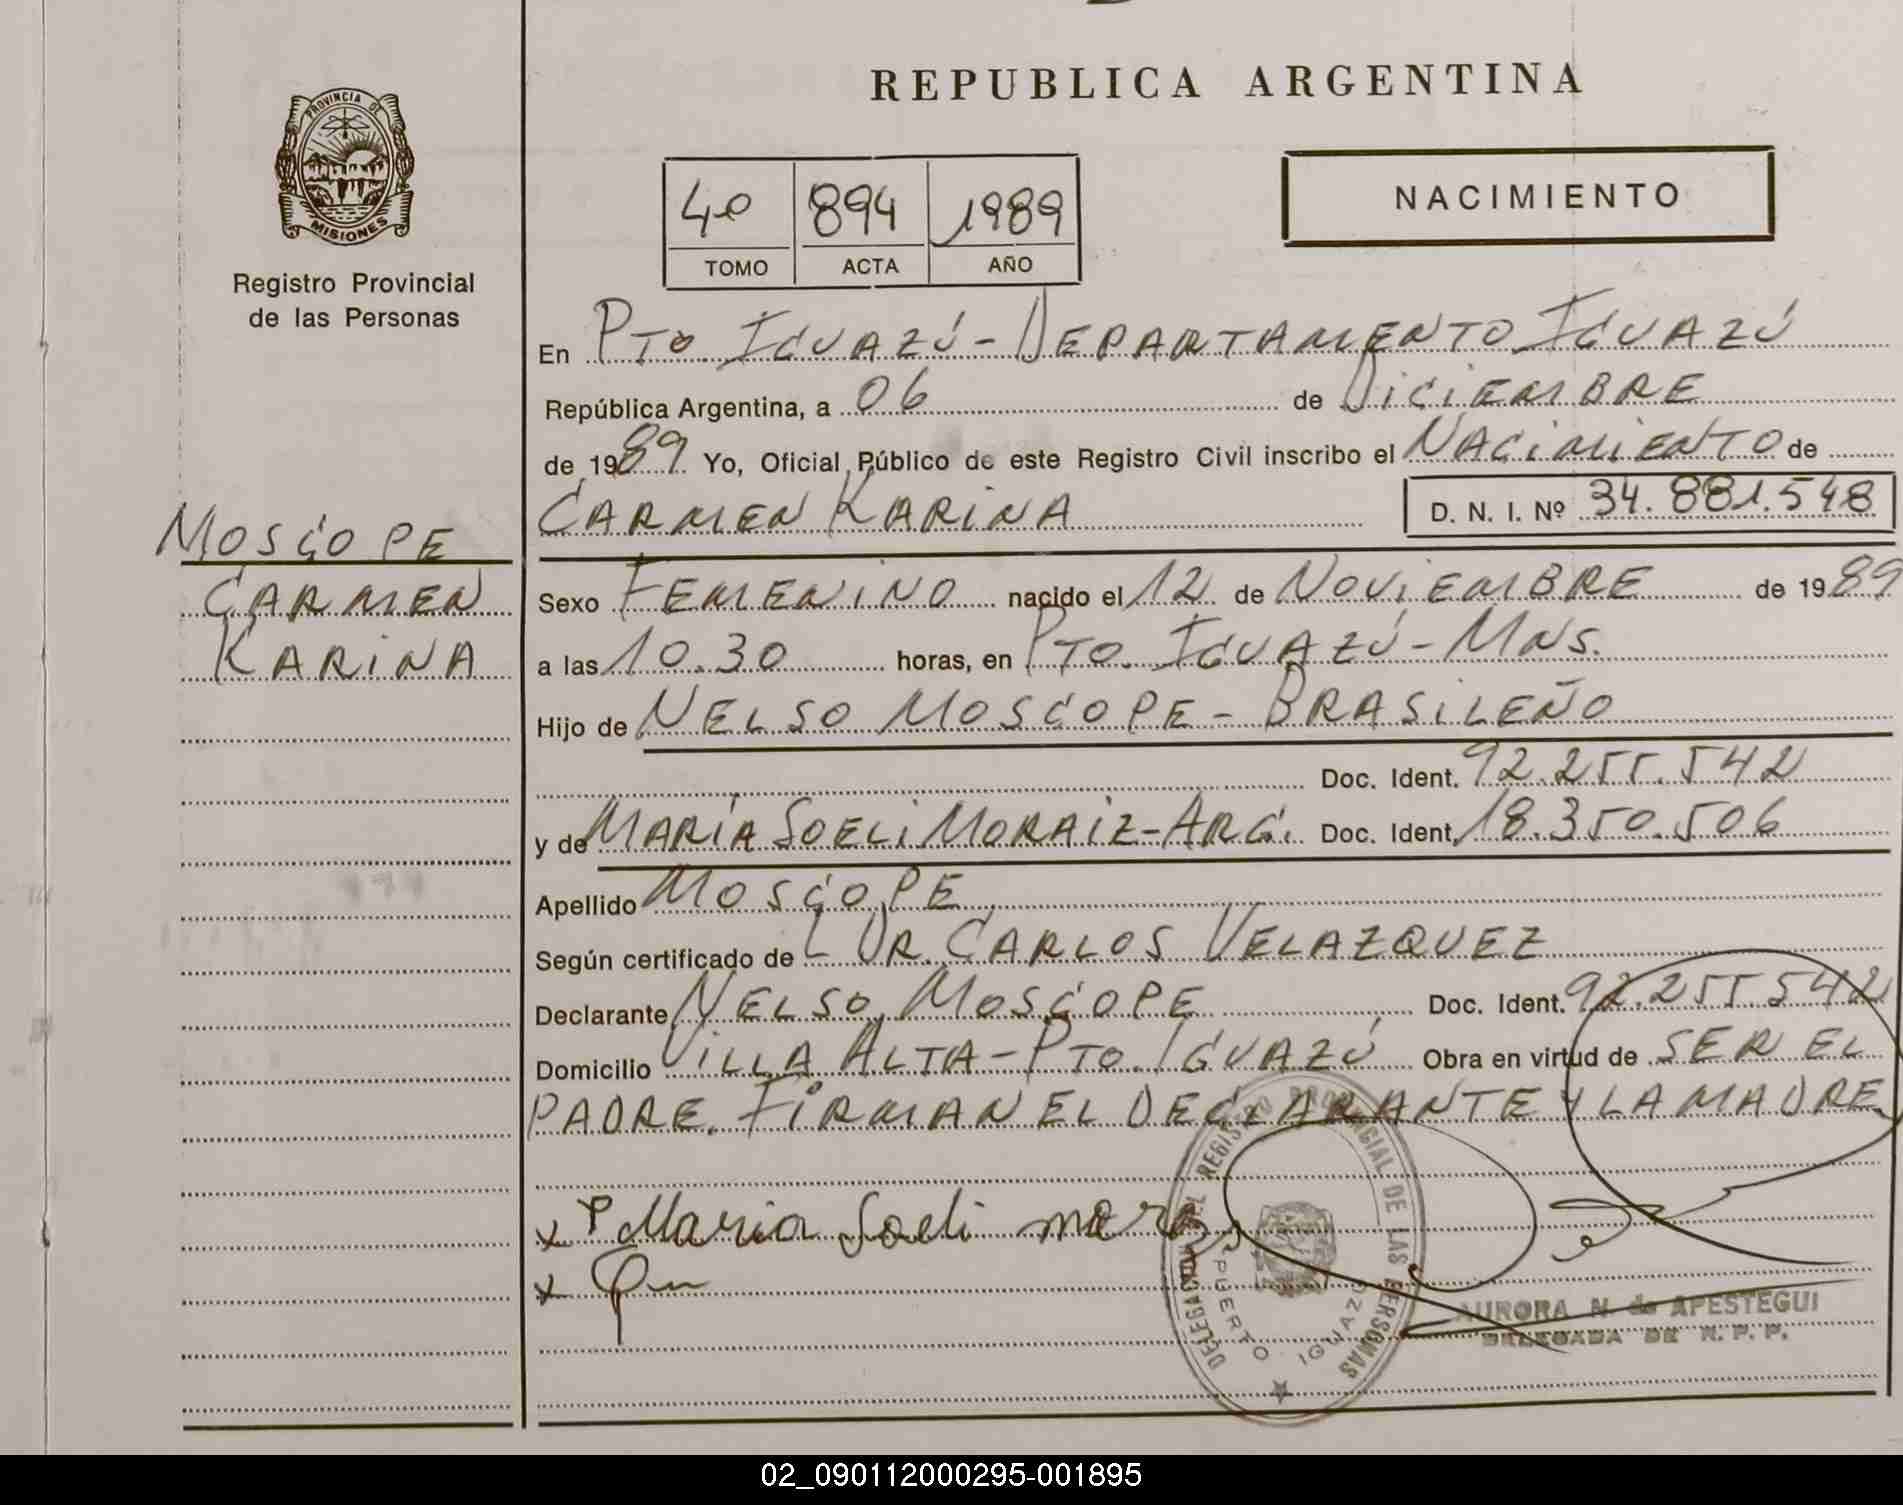 REPUBLICA ARGENTINA
PROVINCIA DE MISIONES
Registro Provincial
de las Personas
4º 894 1989
TOMO ACTA AÑO
NACIMIENTO
En PTO. IGUAZÚ - DEPARTAMENTO IGUAZÚ
República Argentina, a 06 de DICIEMBRE
de 1989. Yo, Oficial Público de este Registro Civil inscribo el NACIMIENTO de
CARMEN KARINA D. N. I. Nº 34.881.548
MOSCOPE
CARMEN
KARINA
Sexo FEMENINO nacido el 12 de NOVIEMBRE de 1989
a las 10.30 horas, en PTO. IGUAZÚ - MNS.
Hijo de NELSO MOSCOPE - BRASILEÑO
Doc. Ident. 92.255.542
y de MARÍA SOELI MORAIZ - ARG. Doc. Ident. 18.350.506
Apellido MOSCOPE
Según certificado de L DR. CARLOS VELAZQUEZ
Declarante NELSO MOSCOPE Doc. Ident. 92.255.542
Domicilio VILLA ALTA - PTO. IGUAZÚ Obra en virtud de SER EL
PADRE. FIRMAN EL DECLARANTE Y LA MADRE
x Maria Soeli
x
DELEGACION DEL REGISTRO PROVINCIAL DE LAS PERSONAS
PUERTO IGUAZU
AURORA N. de APESTEGUI
DELEGADA DE R. P. P.
02_090112000295-001895